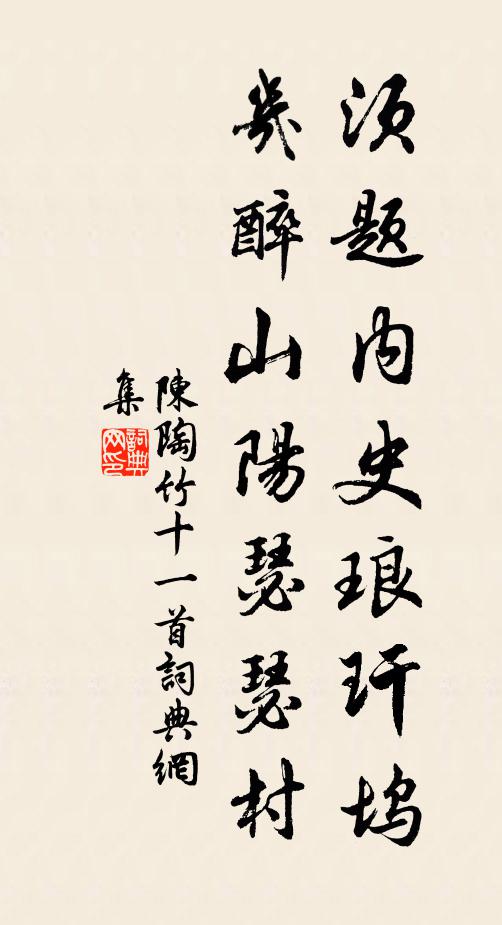 須題内史琅玕塢
幾醉山陽瑟瑟村
陳陶竹十一首詞典網
集
詞典
网印